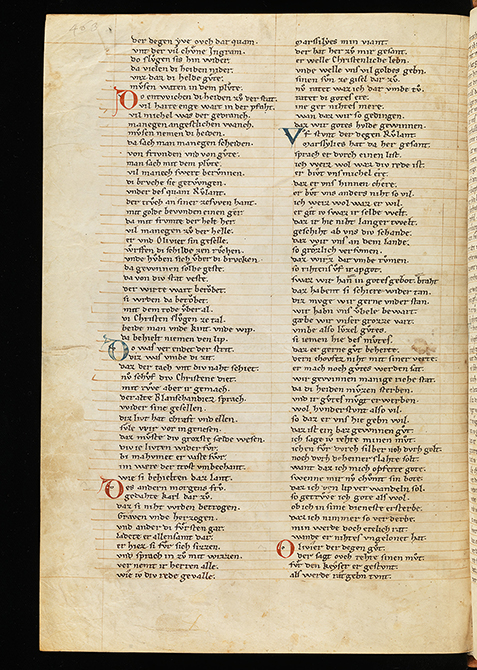 der degen yve ovch dar quam.
vnt der vil chvne Ingram.
do slvgen sis hin wider.
da vielen di heiden nider.
vnz daz di helde gvte.
mvsen waten in dem plvte.
Do entwichen di heiden zv der stat.
vil harte enge wart in der phaht.
vil michel was der gebrach.
manegen angeslichen wanch.
mvsen nemen di heiden.
da sach man manegen scheiden.
von frvnden vnd von gvte.
man sach mit dem plvte.
vil manech swert berunnen.
di brvche sie gewnnen.
vnder des quam Rvlant.
der trvch an siner zeswen hant.
mit golde bewnden einen ger.
da mit frvmte der helt her.
vil manegen zv der helle.
er vnd Olivier sin geselle.
wrfen di schilde zen rvchen.
vnde hvben sich vber di brvcken.
da gewnnen solhe geste.
da von div stat veste.
der wirte wart berovbet.
si wrden da betovbet.
mit dem rede vber al.
di Christen slvgen ze tal.
beide man vnde kint. vnde wip.
da behielt niemen den lip.
Do was ver endet der strit.
Diz was vmbe di zit.
daz der tach vnt div naht schiet.
nv schvf div Christene diet.
mit rvwe aber ir gemach.
der alte Blanschandiez sprach.
wider sine gesellen.
diz livt hat chraft vnd ellen.
svle wir vor in genesen.
daz mvste div grozste sælde wesen.
div ie livten wider fvr.
di mahvmet er walte fvr.
im were der trost vmbechant.
wie si behielten daz lant.
Des andern morgens frv.
gedahte karl dar zv.
daz si niht wrden betrogen.
Graven vnde herzogen.
vnd ander di fvrsten gar.
ladete er allensamt dar.
er hiez si fvr sich sizzen.
vnd sprach in zv mit wizzen.
ver nemt ir herren alle.
wie iv div rede gevalle.
Marssilyes min viant.
der hat her zv mir gesant.
er welle Christenliche lebn.
vnde welle vns vil goldes gebn.
sinen svn ze gisel dar zv.
nv ratet waz ich dar vmbe tv.
ratet di gotes ere.
ine ger nihtes mere.
wan daz wir so gedingen.
daz wir gotes hvlde gewinnen.
Vf stvnt der degen Rvlant.
Marssylies hat da her gesant.
sprach er dvrch einen list.
ich weiz wol waz div rede ist.
er bivt vns michel ere.
daz er vns hinnen chere.
er bvt vns anders niht so vil.
ich weiz wol waz er wil.
er git so swaz ir selbe welt.
daz ir hie niht langer twelt.
geschiht ab vns div schande.
daz wir vns an dem lande.
so grozlich versvmen.
daz wirz dar vmbe rvmen.
so rihtens vf ir apgot.
swaz wir han in gotes gebot. braht
daz habent si schiere wider tan.
diz mvgt wir gerne vnder stan.
wir habn vns vbele bewart.
gæbe wir vnser grozze vart.
vmbe also lvzel gvtes.
si iemen hie des mvtes.
daz er gerne gvt beherte.
dern chovfez niht mit siner verte.
er mach noch gvtes werden sat.
wir gewinnen manige riche stat.
daz di heiden mvzen sterben.
vnd ir gvtes mvgt erwerben.
wol hvnderstvnt also vil.
so daz er vns hie gebn wil.
daz ist ein baz gewinnen gvt.
ich sage iv rehte minen mvt.
ichen fvr dvrch silber noh dvrh golt.
noch dvrh deheiner slahte solt.
want daz ich mich opferte gote.
swenne mir nv chvmt sin bote.
daz ich den lip ver wandeln sol.
so getrvwe ich gote als wol.
ob ich in sime dieneste ersterbe.
daz ich nimmer so ver derbe.
min werde doch etelich rat.
wande er nihtes vngelonet hat.
Olivier der degen gvt.
der sagt ovch rehte sinen mvt.
fvr den keyser er gestvnt.
als werde ratgebn tvnt.